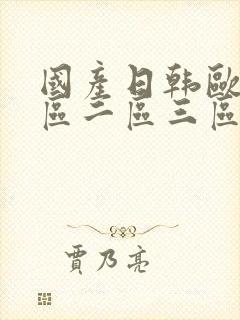 國產日韩歐
區二區三區
賈乃亮